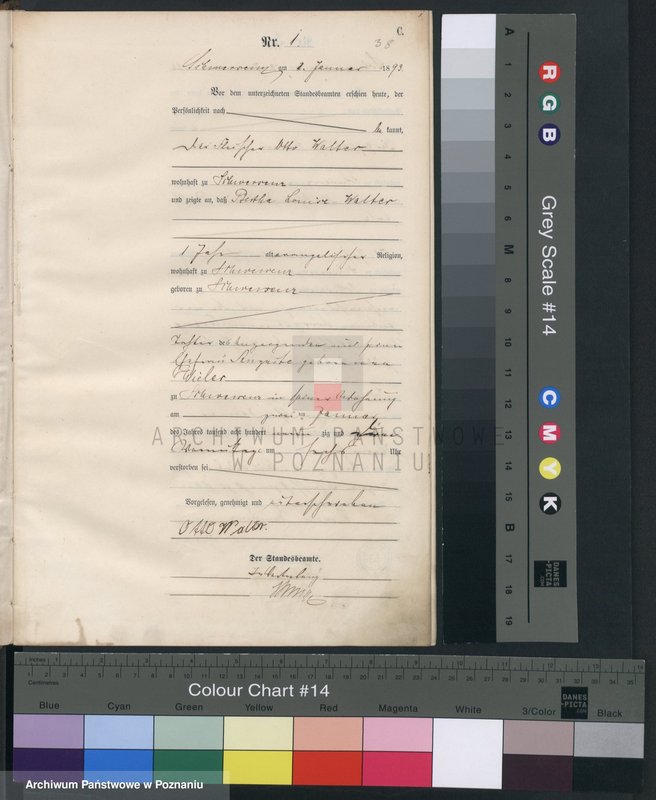 C.
Nr. 1
38
am 2. Januar 1893
Vor dem unterzeichneten Standesbeamten erschien heute, der
Persönlichkeit nach
be kannt,
der Fleischer Otto Walter
wohnhaft zu Schwersenz
und zeigte an, daß Bertha Louise Walter
1 Jahr alt evangelischer Religion,
wohnhaft zu Schwersenz
geboren zu Schwersenz
Tochter des Anzeigenden und seiner
Ehefrau Auguste geborenen
zu Schwersenz in seiner Wohnung
am zwei ten Januar
des Jahres tausend acht hundert zig und drei
Vormittags um sechs Uhr
verstorben sei
Vorgelesen, genehmigt und unterschrieben
Otto Walter.
Der Standesbeamte.
In Vertretung
ARCHIWUM PAŃSTWOWE
W POZNANIU
A 1 2 3 4 5 6 M 8 9 10 11 12 13 14 15 B 17 18 19
R G B
Grey Scale #14
C M Y K
DANES
-PICTA
.COM
Inches 1 2 3 4 5 6 7 8 9 10 11 12 13 14
Centimetres
Colour Chart #14
DANES
-PICTA
.COM
Blue Cyan Green Yellow Red Magenta White 3/Color Black
Archiwum Państwowe w Poznaniu